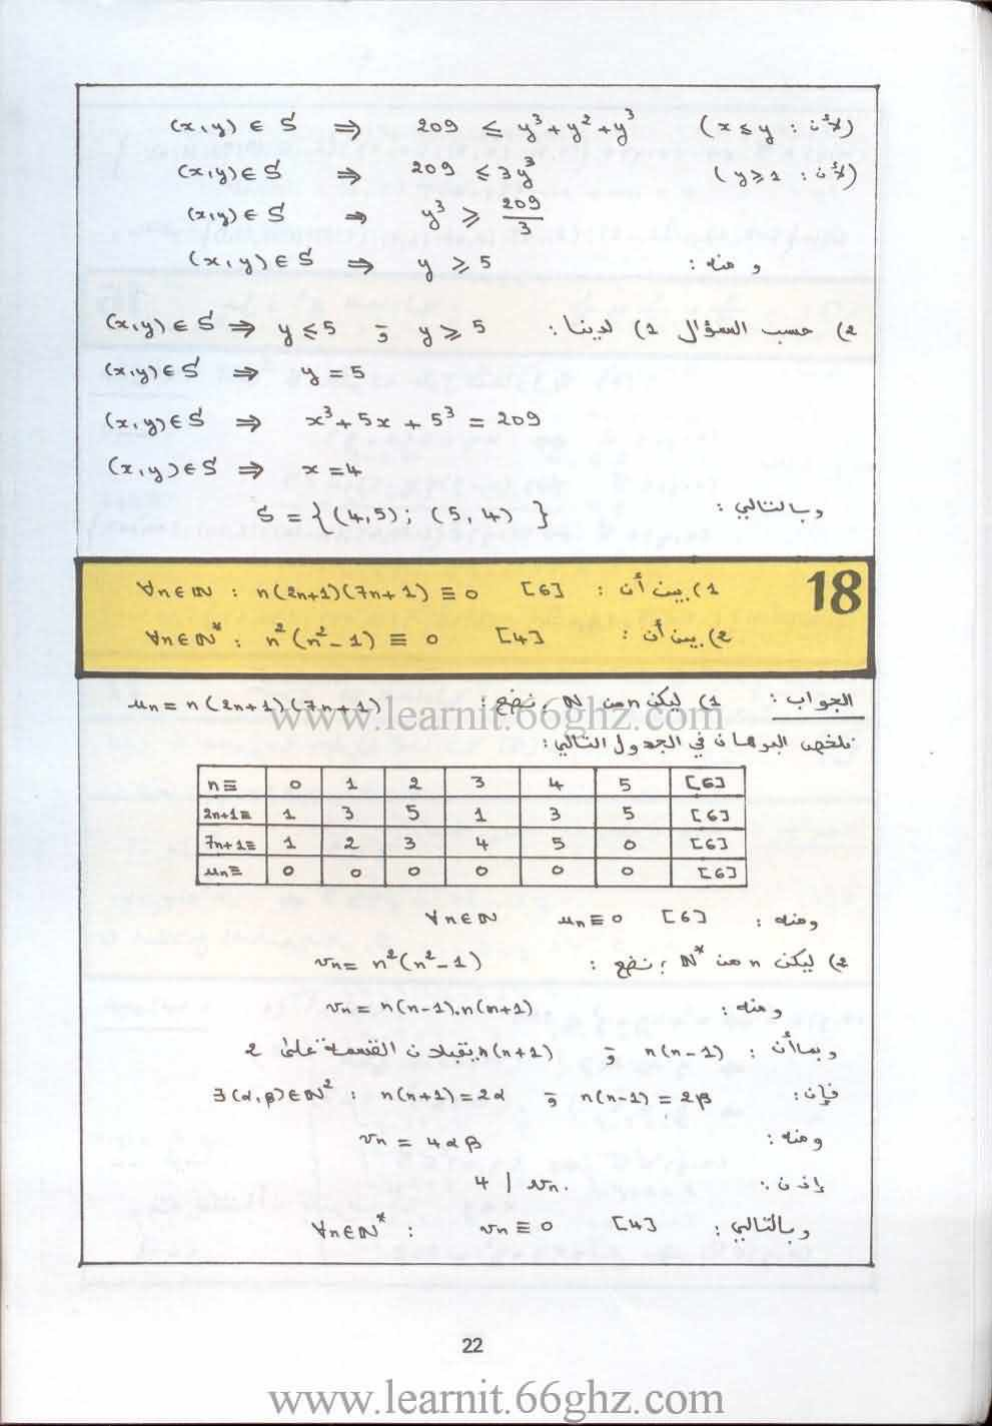 (x,y) ∈ S ⇒ 209 ≤ y³ + y² + y³ (لأن : x ≤ y)
(x,y) ∈ S ⇒ 209 ≤ 3y³ (لأن : y ≥ 1)
(x,y) ∈ S ⇒ y³ ≥ 209/3
ومنه : (x,y) ∈ S ⇒ y ≥ 5
2) حسب السؤال 1) لدينا : (x,y) ∈ S ⇒ y ≤ 5 و y ≥ 5
(x,y) ∈ S ⇒ y = 5
(x,y) ∈ S ⇒ x³ + 5x + 5³ = 209
(x,y) ∈ S ⇒ x = 4
وبالتالي : S = {(4,5); (5,4)}
18
1) بين أن : ∀n∈ℕ : n(2n+1)(7n+1) ≡ 0 [6]
2) بين أن : ∀n∈ℕ* : n²(n²-1) ≡ 0 [4]
الجواب : 1) ليكن n من ℕ، نضع : un = n(2n+1)(7n+1)
www.learnit.66ghz.com
نلخص البرهان في الجدول التالي :
n≡ 0 1 2 3 4 5 [6]
2n+1≡ 1 3 5 1 3 5 [6]
7n+1≡ 1 2 3 4 5 0 [6]
un≡ 0 0 0 0 0 0 [6]
ومنه : ∀n∈ℕ un ≡ 0 [6]
2) ليكن n من ℕ* ؛ نضع : vn = n²(n²-1)
ومنه : vn = n(n-1).n(n+1)
وبما أن : n(n-1) و n(n+1) يقبلان القسمة على 2
فإن : ∃(α,β)∈ℕ² : n(n+1) = 2α و n(n-1) = 2β
ومنه : vn = 4αβ
إذن : 4 | vn.
وبالتالي : ∀n∈ℕ* : vn ≡ 0 [4]
22
www.learnit.66ghz.com